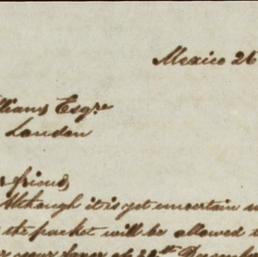 Mexico 26
lliams Esqre
London
r friend
Although it is yet uncertain w
the packet will be allowed t
your favor of 28th December